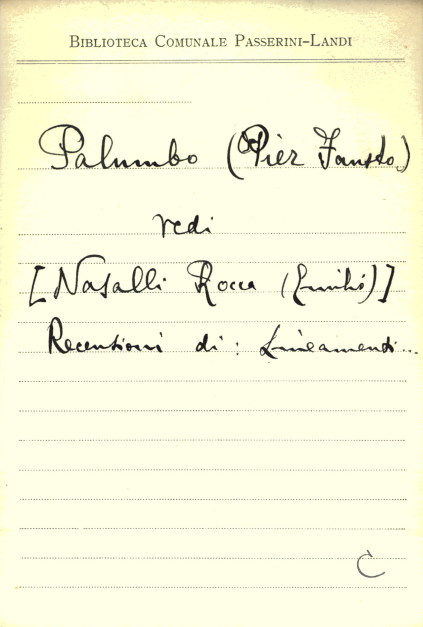 BIBLIOTECA COMUNALE PASSERINI-LANDI
Palumbo (Pier Fausto)
vedi
[Nasalli Rocca (Emilio)]
Recensioni di: Lineamenti...
C